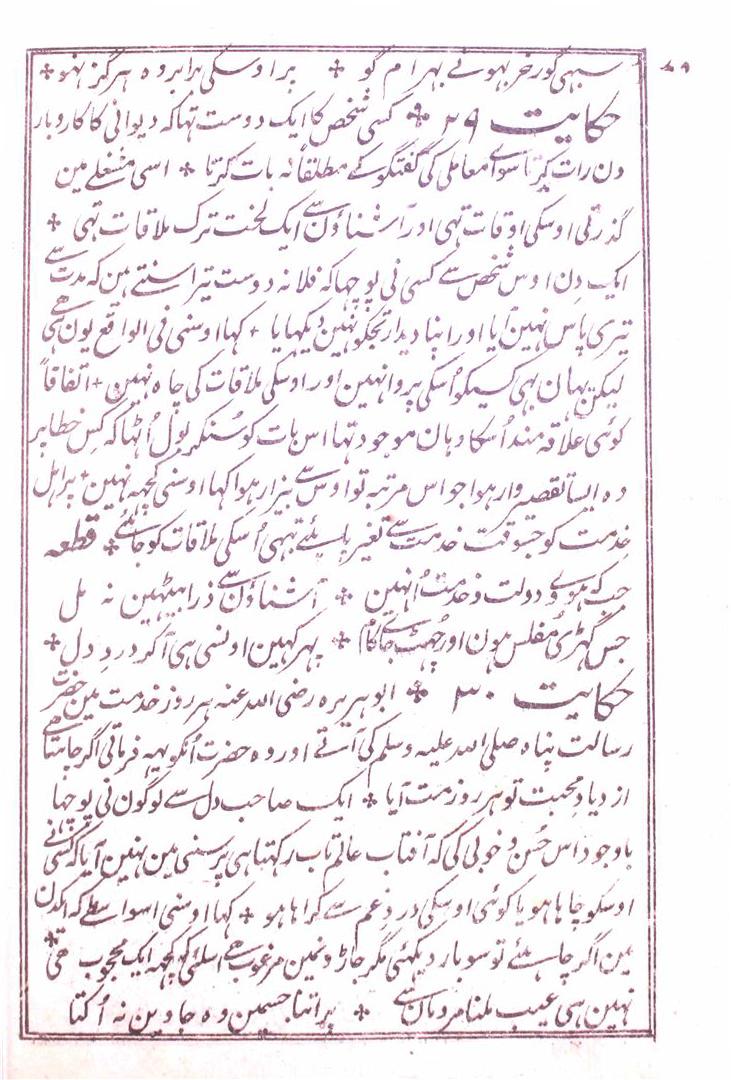 ٨٩
سبھی گورخر بھونے بہرام گو ✤ پر اوسکی برابر وہ ہرگز نہو ✤
حکایت ٢٩ ✤ کسی شخص کا ایک دوست تہا کہ دیوانی کا کاروبار
دن رات کرتا سوائے معاملی کی گفتگو کے مطلقاً نہ بات کرتا ✤ اسی مشغلے مین
گذرتی اوسکی اوقات تہی اور آشناؤن سے ایک لخت ترک ملاقات تہی ✤
ایک دن اوس شخص سے کسی نی پوچہا کہ فلانہ دوست تیرا سنتے ہین کہ مدت سے
تیری پاس نہین آیا اور اپنا دیدار تجکو نہین دیکہایا ✤ کہا اوسنی فی الواقع یون ہی ہے
لیکن یہان بہی کسیکو اُسکی پروا نہین اور اوسکی ملاقات کی چاہ نہین ✤ اتفاقاً
کوئی علاقہ مند اُسکا وہان موجود تہا اس بات کو سُنکر بول اُٹہا کہ کِس خطا پر
وہ ایسا تقصیروار ہوا جو اس مرتبہ تو اوس سے بیزار ہوا کہا اوسنی کچہہ نہین ✤ پر اہل
خدمت کو جسوقت خدمت سے تغیر پائے تبہی اُسکی ملاقات کو جائے ✤ قطعہ
جب کے ہووے دولت و خدمت اُنہین ✤ آشناؤن سے ذرا بیٹہین نہ مل
جس گہڑی مفلس ہون اور چُہٹ جائے کام ✤ پہر کہین اونسی ہی آکر دردِ دل ✤
حکایت ٣٠ ✤ ابو ہریرہ رضی اللہ عنہ ہر روز خدمت مین حضرت
رسالت پناہ صلی اللہ علیہ وسلم کی آتے اور وہ حضرت اُنکو یہہ فرماتی اگر چاہتا ہے
ازدیادِ محبت تو ہر روز مت آیا ✤ ایک صاحب دل سے لوگون نی پوچہا
باوجود اس حُسن و خوبی کی کہ آفتاب عالم تاب رکہتا ہی پر سُننی مین نہین آیا کہ کسی نے
اوسکو چاہا ہو یا کوئی اوسکی درد و غم سے کراہا ہو ✤ کہا اوسنی اسواسطے کہ اکدن
مین اگر چاہئے تو سو بار دیکہئی مگر جاڑونمین مرغوب ہے اسلئی کہ کچہہ ایک محجوب ہی ✤
نہین ہی عیب ملنا مردمان سے ✤ پر اتنا جسمین وہ جاوین نہ اُکتا